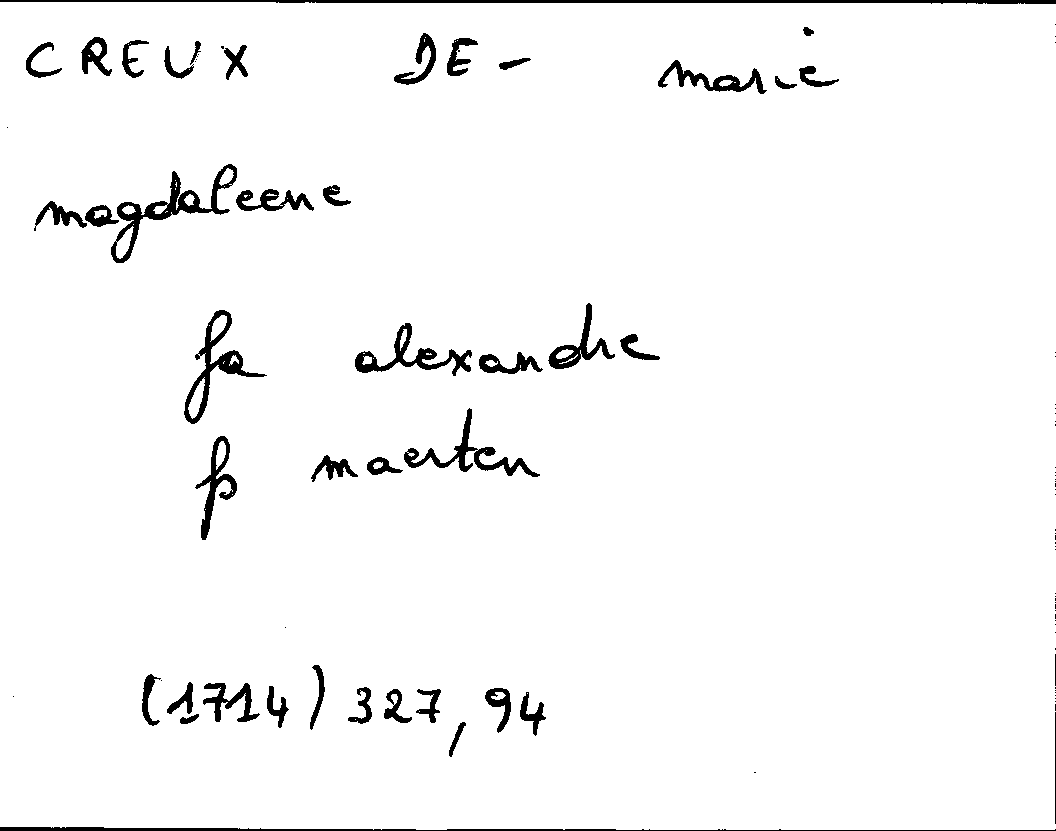 CREUX DE- marie
magdaleene
fa alexandre
fs maerten
(1714) 327, 94